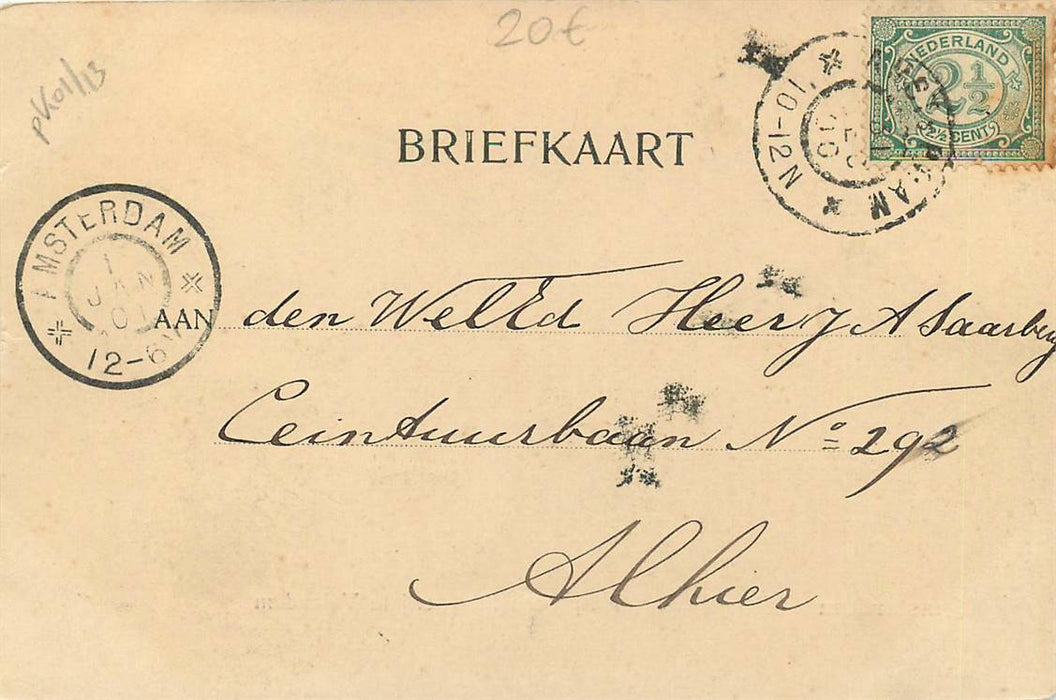 20€
pK01/13
NEDERLAND
2½
2½ CENT
AMSTERDAM
10-12N
BRIEFKAART
AMSTERDAM
1
JAN
01
12-6V
AAN den WelEd Heer J A Saarberg
Ceintuurbaan No 292
Alhier